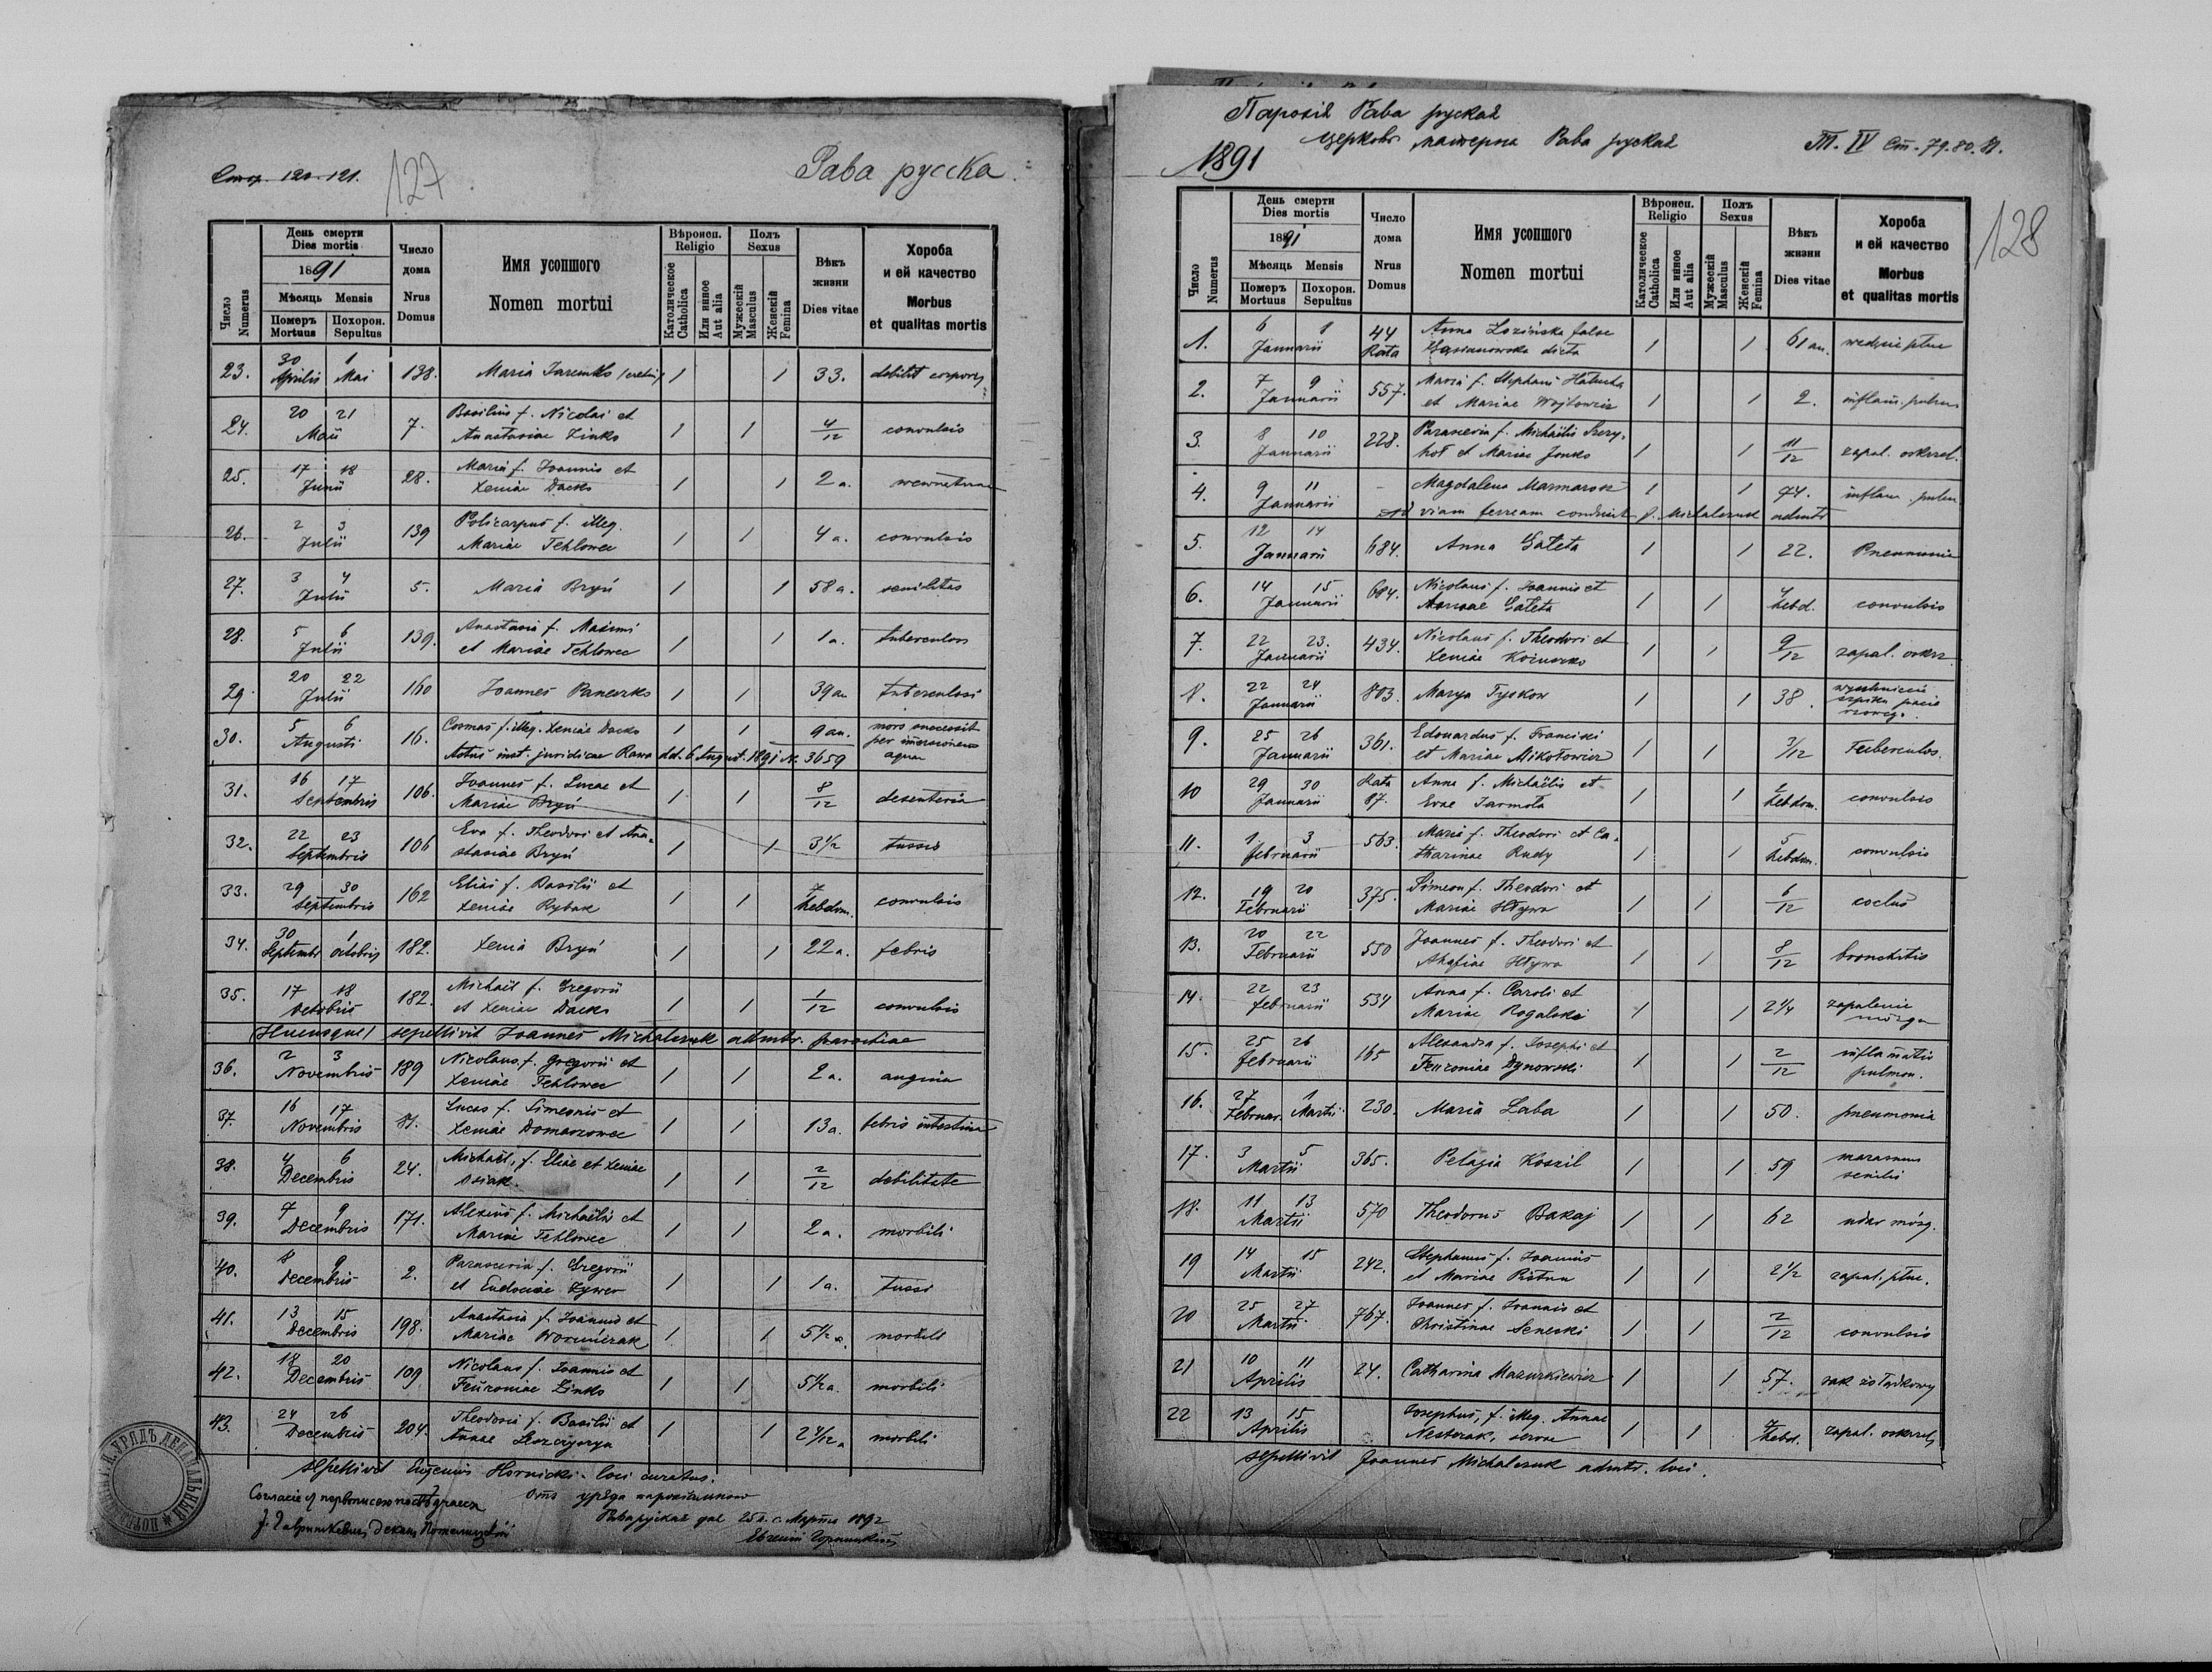 Стор. 120-121.
127
Рава русска
Число Numerus
День смерти
Dies mortis
1891
Мѣсяць Mensis
Померъ Mortuus
Похорон. Sepultus
Число дома
Nrus Domus
Имя усопшого
Nomen mortui
Вѣроисп. Religio
Католическое Catholica
Или инное Aut alia
Полъ Sexus
Мужескій Masculus
Женскій Femina
Вѣкъ жизни
Dies vitae
Хороба и ей качество
Morbus et qualitas mortis
23. 30 Aprilis 1 Mai 138. Maria Jaremko 1 1 33. debilit corporis
24. 20 21 Maii 7. Basilius f. Nicolai et
Anastasiae Zinko 1 1 4/12 convulsio
25. 17 18 Junii 28. Maria f. Joannis et
Xeniae Dacko 1 1 2 a.
26. 2 3 Julii 139 Policarpus f. illeg.
Mariae Tehlowec 1 1 4 a. convulsio
27. 3 4 Julii 5. Maria Bryń 1 1 58 a. senilitas
28. 5 6 Julii 139. Anastasia f. Maximi
et Mariae Tehlowec 1 1 1 a. tuberculos
29. 20 22 Julii 160 Joannes Paneczko 1 1 39 an tuberculosi
30. 5 6 Augusti 16. Cosmas f. illeg. Xeniae Dacko 1 1 9 an. mors successit
per immersionem
aquae
Actus inst. juridicae Rawa dd. 6 August. 1891 N. 3659
31. 16 17 Septembris 106. Joannes f. Lucae et
Mariae Bryń 1 1 8/12 desenteria
32. 22 23 Septembris 106 Eva f. Theodori et Ana-
stasiae Bryń 1 1 3 1/2 tussis
33. 29 30 Septembris 162 Elias f. Basilii et
Xeniae Rybak 1 1 7 hebdom. convulsio
34. 30 Septembr 1 octobris 182. Xenia Bryń 1 1 22 a. febris
35. 17 18 Octobris 182. Michael f. Gregorii
et Xeniae Dacko 1 1 1/12 convulsio
(Hucusque) sepellivit Joannes Michalczuk admtr. parochiae
36. 2 3 Novembris 189 Nicolaus, f. Gregorii et
Xeniae Tehlowec 1 1 2 a. angina
37. 16 17 Novembris 81. Lucas f. Simeonis et
Xeniae Domaszowec 1 1 13 a. febris intestinal
38. 4 6 Decembris 24. Michael, f. Eliae et Xeniae
Osiak. 1 1 2/12 debilitate
39. 7 9 Decembris 171. Alexius f. Michaelis et
Mariae Tehlowec 1 1 2 a. morbili
40. 8 9 Decembris 2. Parascevia f. Gregorii
et Eudociae Zywer 1 1 1 a. tussi
41. 13 15 Decembris 198. Anastasia f. Joannis et
Mariae Worniczak 1 1 5 1/2 a. morbili
42. 18 20 Decembris 109 Nicolaus f. Joannis et
Feuroniae Zinko 1 1 5 1/2 a. morbili
43. 24 26 Decembris 204. Theodosia f. Basilii et
Annae 1 1 2 4/12 a morbili
sepellivit Eugenius Hornicki. loci curatus.
Отъ уряда парохіяльного
Рава руская дня 25 Марта 1892
Евгеній Горницкій
Парохія Рава руская
Церковь матерна Рава руская
Т. IV Ст. 79. 80.
1891
128
Число Numerus
День смерти
Dies mortis
1891
Мѣсяць Mensis
Померъ Mortuus
Похорон. Sepultus
Число дома
Nrus Domus
Имя усопшого
Nomen mortui
Вѣроисп. Religio
Католическое Catholica
Или инное Aut alia
Полъ Sexus
Мужескій Masculus
Женскій Femina
Вѣкъ жизни
Dies vitae
Хороба и ей качество
Morbus et qualitas mortis
1. 6 8 Januarii 44 Rata Anna Lozińska false
dicta 1 1 61 an.
2. 7 9 Januarii 557. Maria f. Stephani
et Mariae Wojtowicz 1 1 2. inflam. pulmon
3. 8 10 Januarii 228. Parascevia f. Michaelis
et Mariae Jonko 1 1 11/12 zapal. oskrzel.
4. 9 11 Januarii - Magdalena Marmarosz 1 1 74. inflam. pulm.
ad viam ferream conduxit J. Michalczuk admtr
5. 12 14 Januarii 684. Anna Gateta 1 1 22. Pneumonia
6. 14 15 Januarii 684. Nicolaus f. Joannis et
Annae Gateta 1 1 4 hebd. convulsio
7. 22 23. Januarii 434. Nicolaus f. Theodori et
Xeniae 1 1 9/12 zapal. oskrz.
8. 22 24 Januarii 803. Marya Tyckow 1 1 38.
9. 25 26 Januarii 361. Edouardus f. Francisci
et Mariae Mikołowicz 1 1 7/12 Tuberculos.
10 29 30 Januarii Rata 87. Anna f. Michaëlis et
Evae Jarmola 1 1 2 hebdom. convulsio
11. 1 3 februarii 563. Maria f. Theodori et Ca-
tharinae Rudy 1 1 5 hebdom. convulsio
12. 19 20 Februarii 375. Simeon f. Theodori et
Mariae Hływa 1 1 6/12 coclus
13. 20 22 Februarii 550 Joannes f. Theodori et
Ahafiae Hływa 1 1 8/12 bronchitis
14. 22 23 februarii 534 Anna f. Caroli et
Mariae Rogalski 1 1 2 1/4 zapalenie
mózgu
15. 25 26 februarii 165 Alexandra f. Josephi et
Feuroniae Dynowski 1 1 2/12 inflamatio
pulmon.
16. 27 Februar. 1 Martii 230. Maria Laba 1 1 50. pneumonia
17. 3 5 Martii 365. Pelagia Koszil 1 1 59 marasmus
senilis
18. 11 13 Martii 570 Theodorus Bakaj 1 1 62 udar mózg.
19 14 15 Martii 242. Stephanus f. Joannis
et Mariae Pistun 1 1 2 1/2 zapal. płuc.
20 25 27 Martii 767. Joannes f. Joannis et
Christinae Senecki 1 1 2/12 convulsio
21 10 11 Aprilis 24. Catharina Mazurkiewicz 1 1 57. rak żołądkowy
22 13 15 Aprilis Josephus, f. illeg. Annae
Nesterak, servae 1 1 7 hebd. zapal. oskrzeli
sepellivit Joannes Michalczuk admtr. loci.